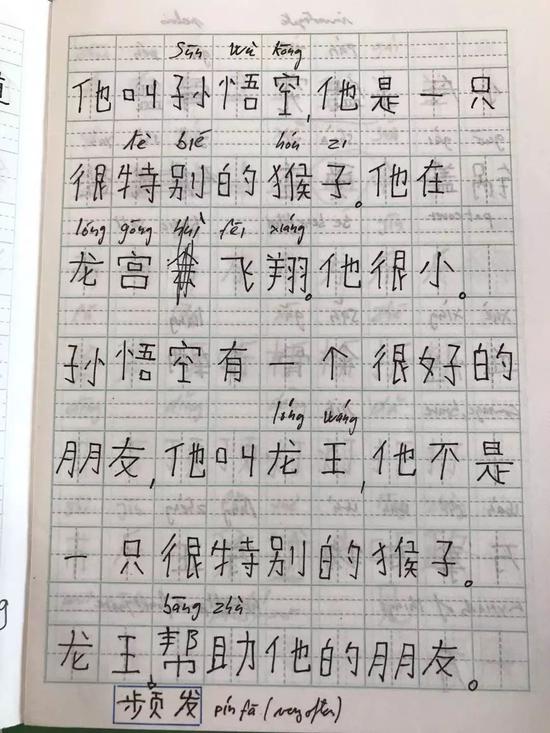 Sūn wù kōng
他叫孙悟空,他是一只
tè bié hóu zi
很特别的猴子。他在
lóng gōng fēi xiáng
龙宫 飞翔。他很小。
孙悟空有一个很好的
lóng wáng
朋友,他叫龙王,他不是
一只很特别的猴子。
bāng zhù
龙王帮助他的朋友。
频发 pín fā (very often)